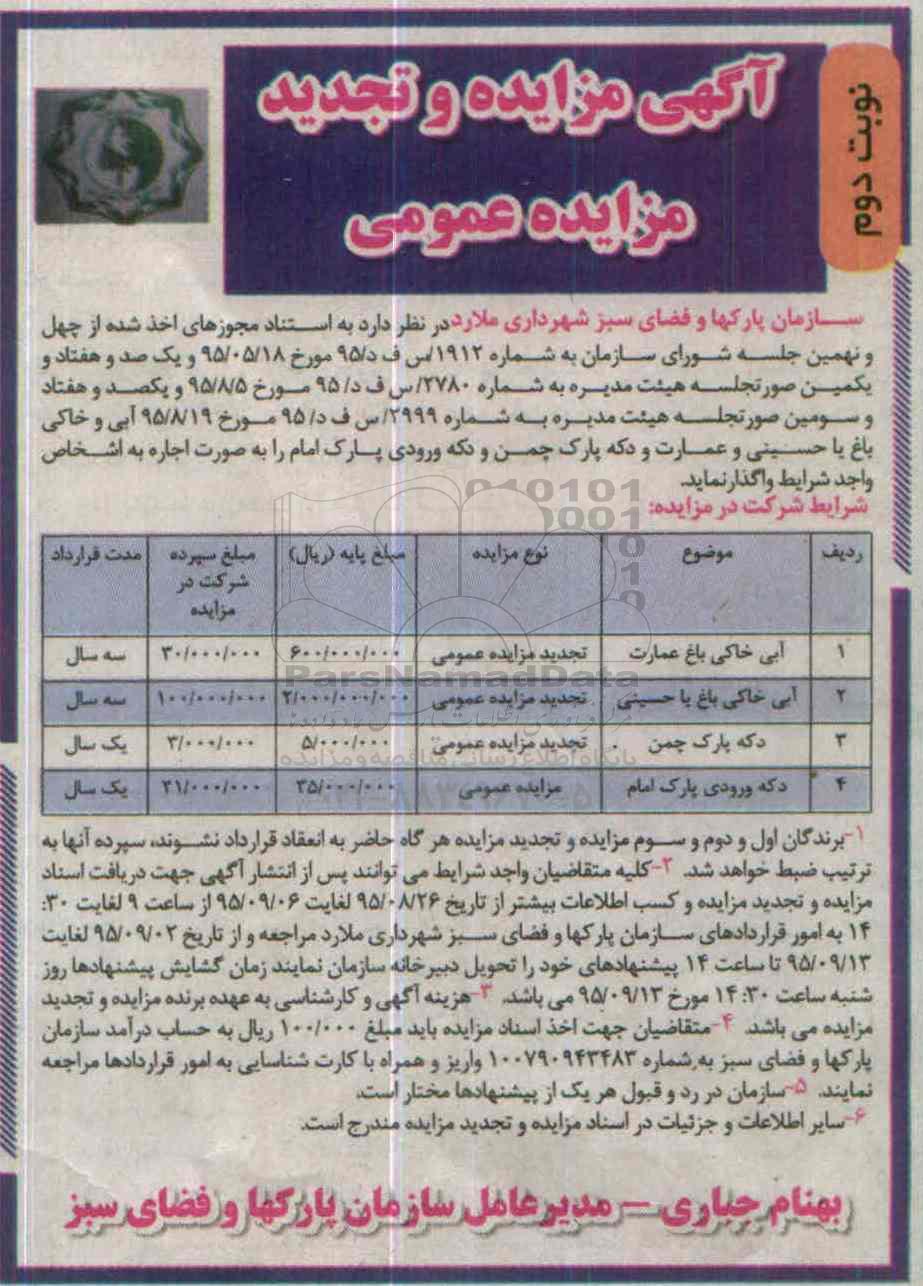 نوبت دوم
آگهی مزایده و تجدید
مزایده عمومی
سازمان پارکها و فضای سبز شهرداری ملارد در نظر دارد به استناد مجوزهای اخذ شده از چهل
و نهمین جلسه شورای سازمان به شماره ۱۹۱۲/س ف د/۹۵ مورخ ۹۵/۰۵/۱۸ و یک صد و هفتاد و
یکمین صورتجلسه هیئت مدیره به شماره ۲۷۸۰/ س ف د/ ۹۵ مورخ ۹۵/۸/۵ و یکصد و هفتاد
و سومین صورتجلسه هیئت مدیره به شماره ۲۹۹۹/ س ف د/ ۹۵ مورخ ۹۵/۸/۱۹ آبی و خاکی
باغ یا حسینی و عمارت و دکه پارک چمن و دکه ورودی پارک امام را به صورت اجاره به اشخاص
واجد شرایط واگذار نماید.
شرایط شرکت در مزایده:
ردیف موضوع نوع مزایده مبلغ پایه (ریال) مبلغ سپرده شرکت در مزایده مدت قرارداد
۱ آبی خاکی باغ عمارت تجدید مزایده عمومی ۶۰۰/۰۰۰/۰۰۰ ۳۰/۰۰۰/۰۰۰ سه سال
۲ آبی خاکی باغ یا حسینی تجدید مزایده عمومی ۲/۰۰۰/۰۰۰/۰۰۰ ۱۰۰/۰۰۰/۰۰۰ سه سال
۳ دکه پارک چمن تجدید مزایده عمومی ۵/۰۰۰/۰۰۰ ۳/۰۰۰/۰۰۰ یک سال
۴ دکه ورودی پارک امام مزایده عمومی ۳۵/۰۰۰/۰۰۰ ۲۱/۰۰۰/۰۰۰ یک سال
ParsNamadData
پایگاه اطلاع رسانی مناقصه و مزایده
۱-برندگان اول و دوم و سوم مزایده و تجدید مزایده هر گاه حاضر به انعقاد قرارداد نشوند، سپرده آنها به
ترتیب ضبط خواهد شد. ۲-کلیه متقاضیان واجد شرایط می توانند پس از انتشار آگهی جهت دریافت اسناد
مزایده و تجدید مزایده و کسب اطلاعات بیشتر از تاریخ ۹۵/۰۸/۲۶ لغایت ۹۵/۰۹/۰۶ از ساعت ۹ لغایت ۳۰:
۱۴ به امور قراردادهای سازمان پارکها و فضای سبز شهرداری ملارد مراجعه و از تاریخ ۹۵/۰۹/۰۲ لغایت
۹۵/۰۹/۱۳ تا ساعت ۱۴ پیشنهادهای خود را تحویل دبیرخانه سازمان نمایند زمان گشایش پیشنهادها روز
شنبه ساعت ۱۴:۳۰ مورخ ۹۵/۰۹/۱۳ می باشد. ۳-هزینه آگهی و کارشناسی به عهده برنده مزایده و تجدید
مزایده می باشد. ۴-متقاضیان جهت اخذ اسناد مزایده باید مبلغ ۱۰۰/۰۰۰ ریال به حساب درآمد سازمان
پارکها و فضای سبز به شماره ۱۰۰۷۹۰۹۴۳۴۸۳ واریز و همراه با کارت شناسایی به امور قراردادها مراجعه
نمایند. ۵-سازمان در رد و قبول هر یک از پیشنهادها مختار است.
۶-سایر اطلاعات و جزئیات در اسناد مزایده و تجدید مزایده مندرج است.
بهنام جباری – مدیرعامل سازمان پارکها و فضای سبز